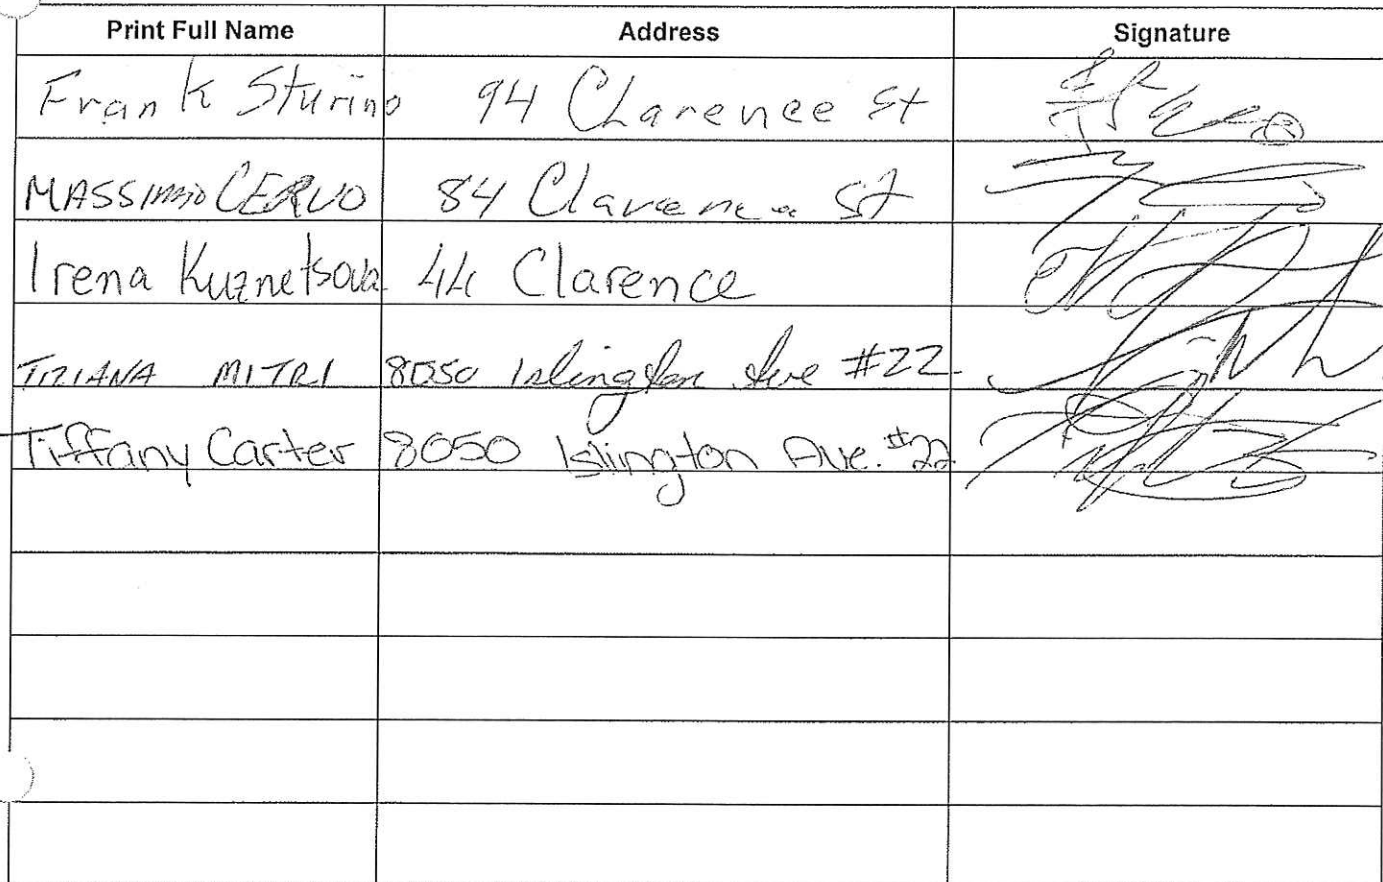 Print Full Name Address Signature
Frank Sturino 94 Clarence St
MASSIMO CERVO 84 Clarence St
Irena Kuznetsova 44 Clarence
TIZIANA MITRI 8050 Islington Ave #22
Tiffany Carter 8050 Islington Ave. #22